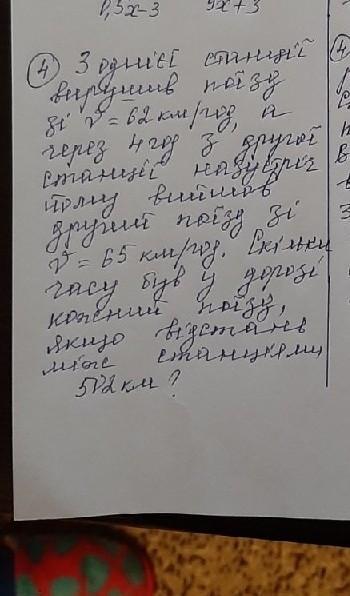 1,5x-3 5x+3
④ З однієї станції
вирушив поїзд
зі v = 62 км/год, а
через 4 год з другої
станції назустріч
йому вийшов
другий поїзд зі
v = 65 км/год. Скільки
часу був у дорозі
кожний поїзд,
якщо відстань
між станціями
502 км?